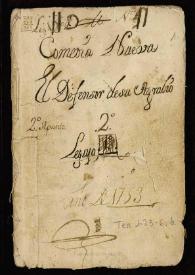 Comedia Nueva
El Defensor de su Agravio
2º Apunte
2º
Legajo
año de 1753
Tea 1-23-6, b